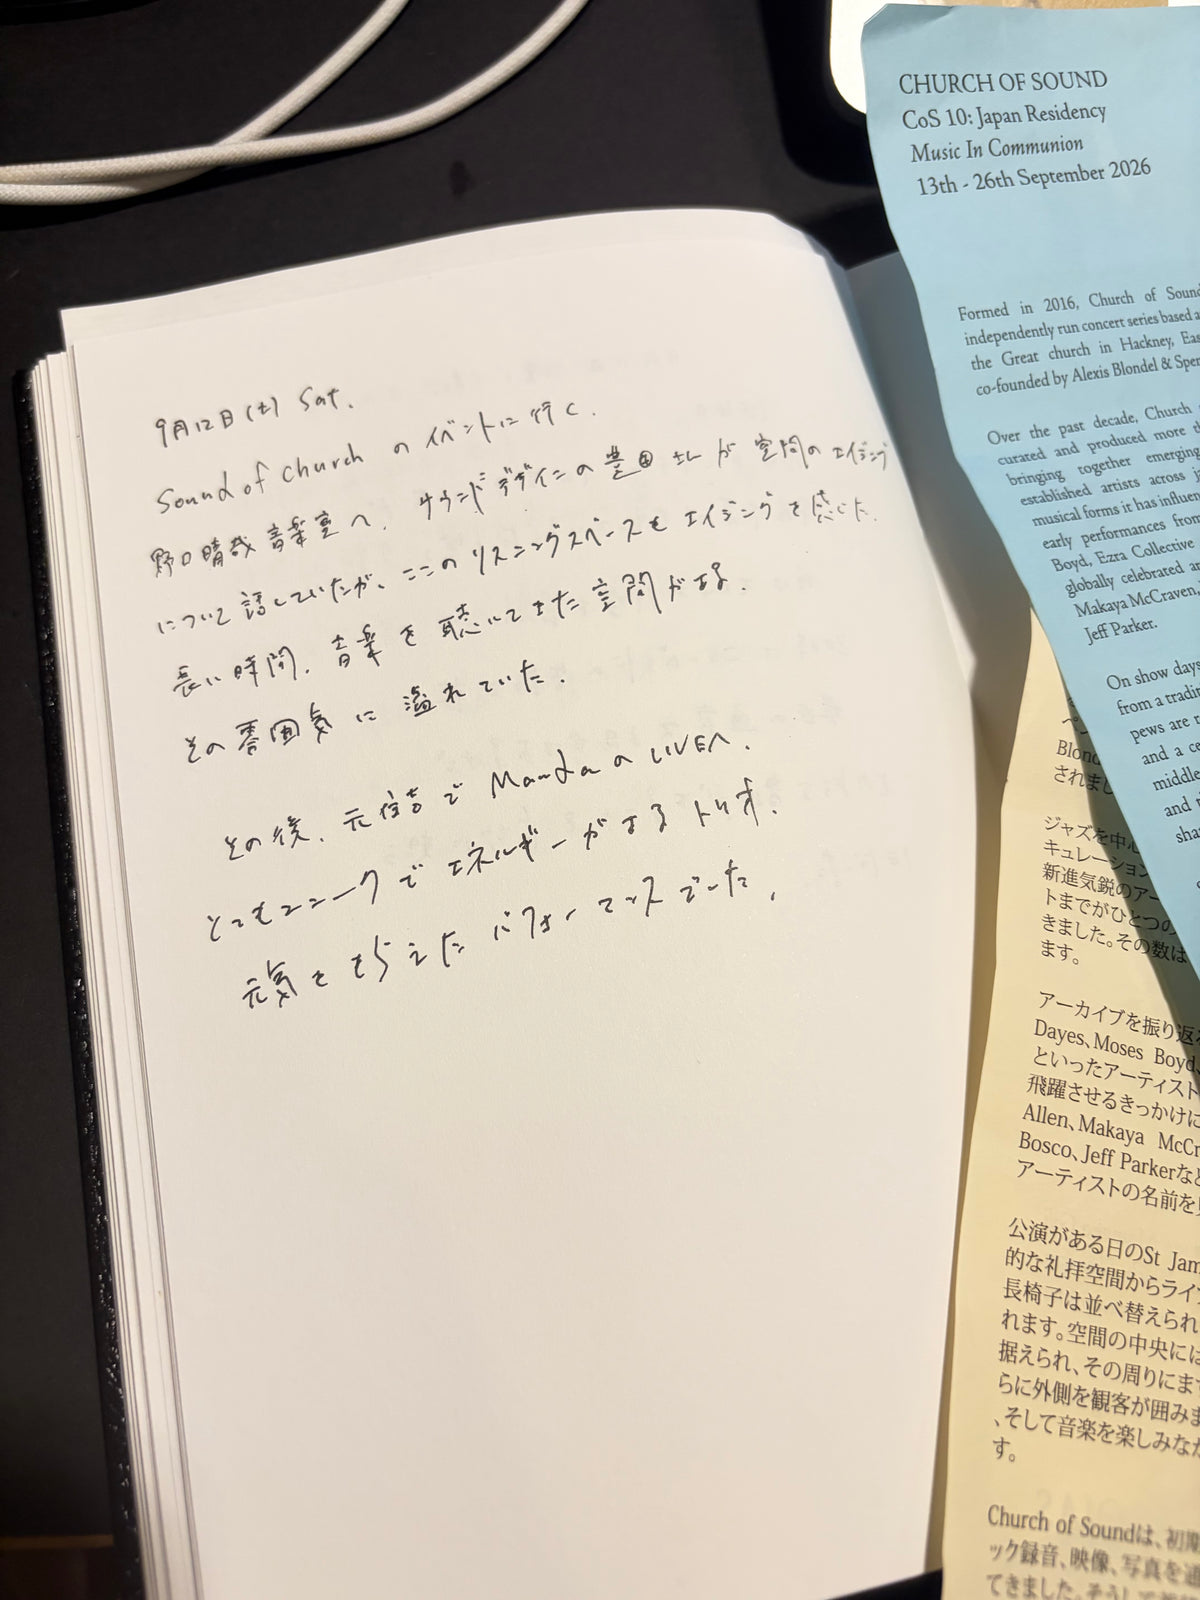 9月12日(土) Sat.
Sound of Church のイベントに行く.
野口晴哉音楽室へ. サウンドデザインの豊田さんが空間のエイジング
について話していたが、ここのリスニングスペースもエイジングを感じた.
長い時間、音楽を聴いてきた空間がある.
その雰囲気に溢れていた.
その後、元住吉で MandaのLIVEへ.
とってもユニークでエネルギーがあるトリオ.
元気をもらえたパフォーマンスでした.
CHURCH OF SOUND
CoS 10: Japan Residency
Music In Communion
13th - 26th September 2026
Formed in 2016, Church of Sound
independently run concert series based a
the Great church in Hackney, Eas
co-founded by Alexis Blondel & Sper
Over the past decade, Church
curated and produced more th
bringing together emerging
established artists across j
musical forms it has influen
early performances from
Boyd, Ezra Collective
globally celebrated ar
Makaya McCraven,
Jeff Parker.
On show days
from a tradi
pews are r
and a ce
middle
and t
shar
ペン
Blond
されまし
ジャズを中心
キュレーション
新進気鋭のアー
トまでがひとつの
きました。その数は
ます。
アーカイブを振り返る
Dayes、Moses Boyd、
といったアーティスト
飛躍させるきっかけに
Allen、Makaya McCr
Bosco、Jeff Parkerなど
アーティストの名前を見
公演がある日のSt Jam
的な礼拝空間からライブ
長椅子は並べ替えられ
れます。空間の中央には
据えられ、その周りにま
らに外側を観客が囲みま
、そして音楽を楽しみなが
す。
Church of Soundは、初期
ック録音、映像、写真を通
てきました。そうして